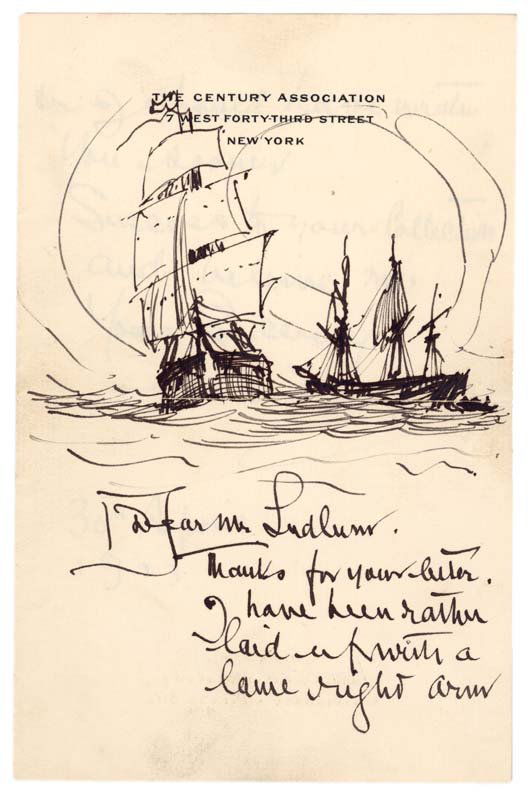 THE CENTURY ASSOCIATION
7 WEST FORTY-THIRD STREET
NEW YORK
Dear Mr Ludlum.
Thanks for your letter.
I have been rather
laid up with a
lame right arm